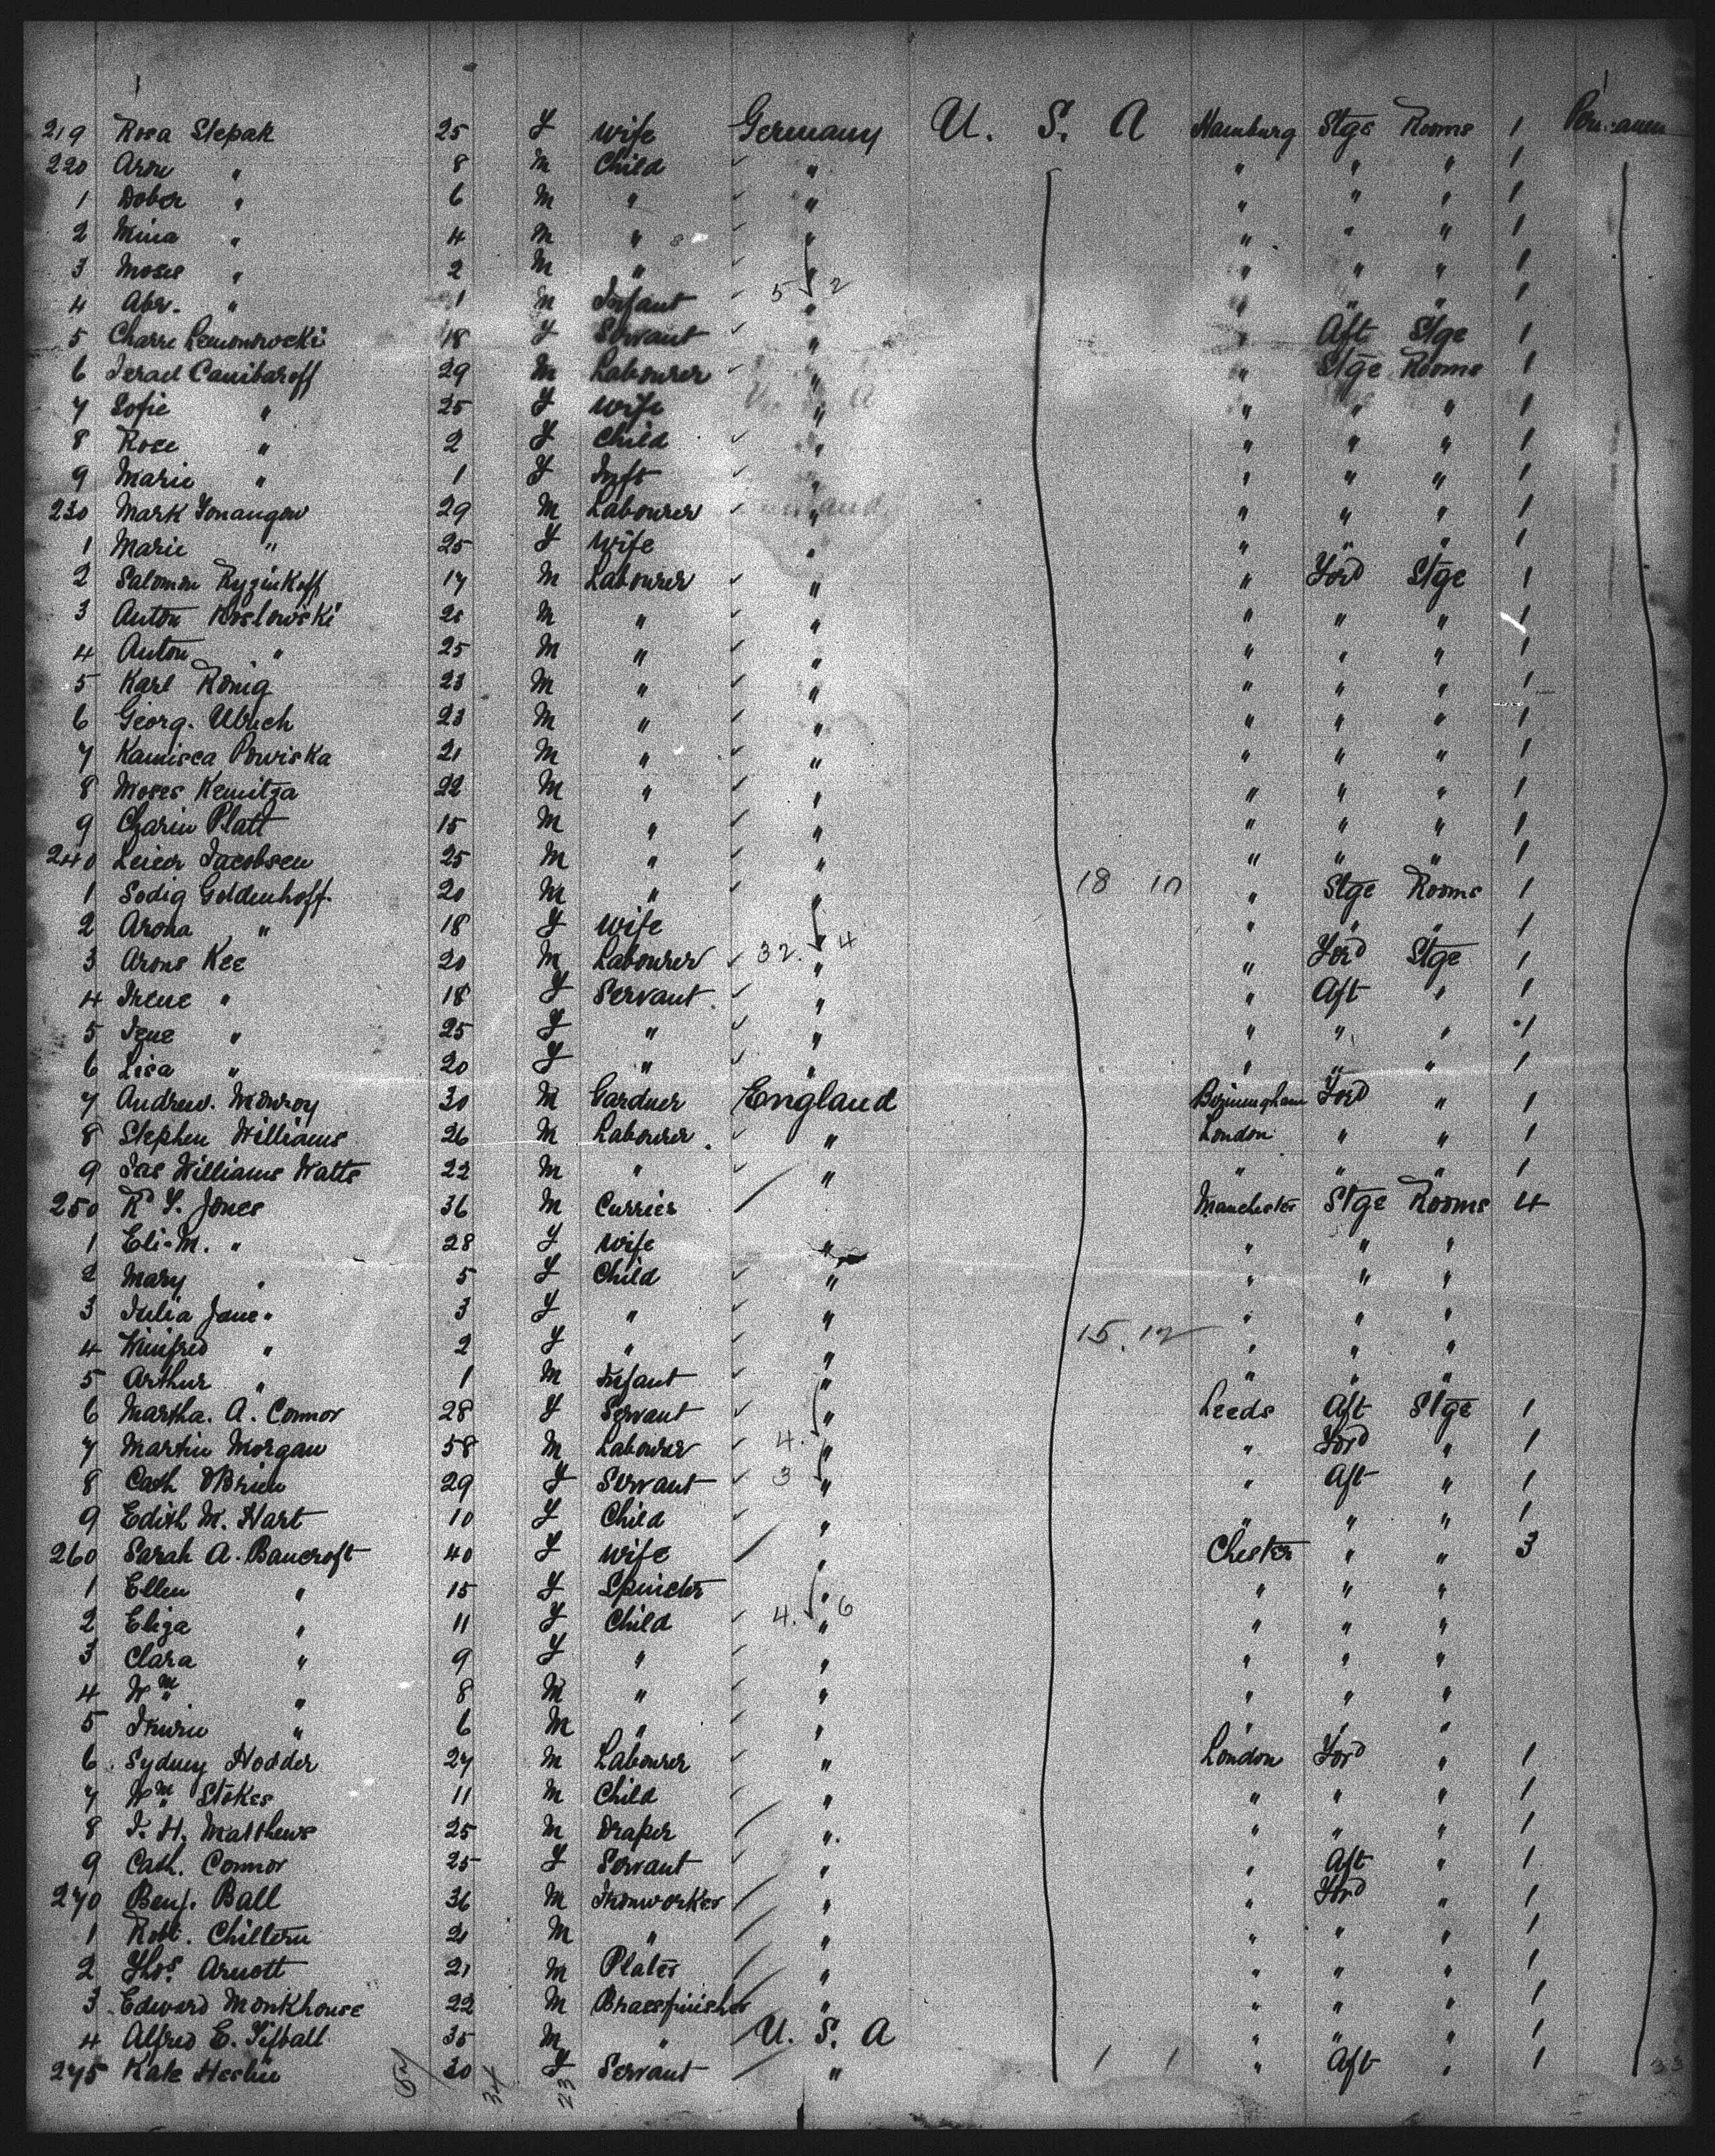 219 Rosa Slepak 25 F Wife Germany U. S. A Hamburg Stge Rooms 1
220 Aron " 8 M Child " " " " 1
1 Dober " 6 M " " " " " 1
2 Mina " 4 M " " " " " 1
3 Moses " 2 M " " " " " 1
4 Abr. " 1 M Infant 5 2 " " " " 1
5 Charre 18 F Servant " " Aft Stge 1
6 Israel Canibaroff 29 M Labourer " " Stge Rooms 1
7 Sofie " 25 F Wife " " " " 1
8 Rose " 2 F Child " " " " 1
9 Marie " 1 F Inft " " " " 1
230 Mark Jonangow 29 M Labourer " " " " 1
1 Marie " 25 F Wife " " " " 1
2 Salomon Ryzinkoff 17 M Labourer " " Ford Stge 1
3 Anton Koslowski M " " " " " 1
4 Anton " 25 M " " " " " 1
5 Karl König 23 M " " " " " 1
6 Georg. Ulrich 23 M " " " " " 1
7 Kamisca Powiska 21 M " " " " " 1
8 Moses Kemitza 22 M " " " " " 1
9 Charin Platt 15 M " " " " " 1
240 Leier Jacobsen 25 M " " " " " 1
1 Sodig Goldenhoff. 20 M " " 18 10 " Stge Rooms 1
2 Arona " 18 F Wife " " " " 1
3 Arons Kee 20 M Labourer 32. 4 " " Ford Stge 1
4 Irene " 18 F Servant " " Aft " 1
5 Jene " 25 F " " " " " 1
6 Lisa " 20 F " " " " " 1
7 Andrew. Monroy 30 M Gardner England Birmingham Ford " 1
8 Stephen Williams 26 M Labourer " London " " 1
9 Jas Williams Watts 22 M " " " " " 1
250 R. S. Jones 36 M Currier " Manchester Stge Rooms 4
1 Eli. M. " 28 F Wife " " " "
2 Mary " 5 F Child " " " "
3 Julia Jane " 3 F " " " " "
4 Winifred " 2 F " " 15. 12 " " "
5 Arthur " 1 M Infant " " " "
6 Martha. A. Connor 28 F Servant " Leeds Aft Stge 1
7 Martin Morgan 58 M Labourer 4. " " Ford " 1
8 Cath OBrien 29 F Servant 3 " " Aft " 1
9 Edith M. Hart 10 F Child " " " " 1
260 Sarah A. Bancroft 40 F Wife " Chester " " 3
1 Ellen " 15 F Spinster " " " "
2 Eliza " 11 F Child 4. 6 " " " "
3 Clara " 9 F " " " " "
4 Wm " 8 M " " " " "
5 Irwin " 6 M " " " " "
6 Sydney Hodder 27 M Labourer " London Ford " 1
7 Wm Stokes 11 M Child " " " " 1
8 J. H. Matthews 25 M Draper " " " " 1
9 Cath. Connor 25 F Servant " " Aft " 1
270 Benj. Ball 36 M Ironworker " " Ford " 1
1 Robt. Chiltern 21 M " " " " " 1
2 Thos. Arnott 21 M Plater " " " " 1
3 Edward Monkhouse 22 M Brassfinisher " " " " 1
4 Alfred E. 35 M " U. S. A " " " 1
275 Kate Heslin 30 F Servant " 1 1 " Aft " 1
34 23